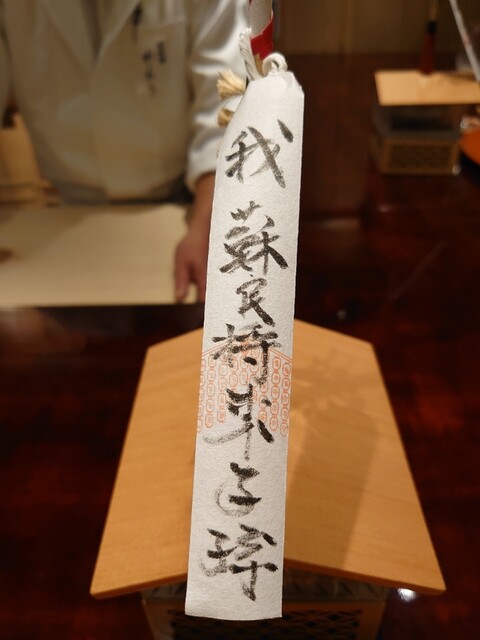 我蘇民将来子孫